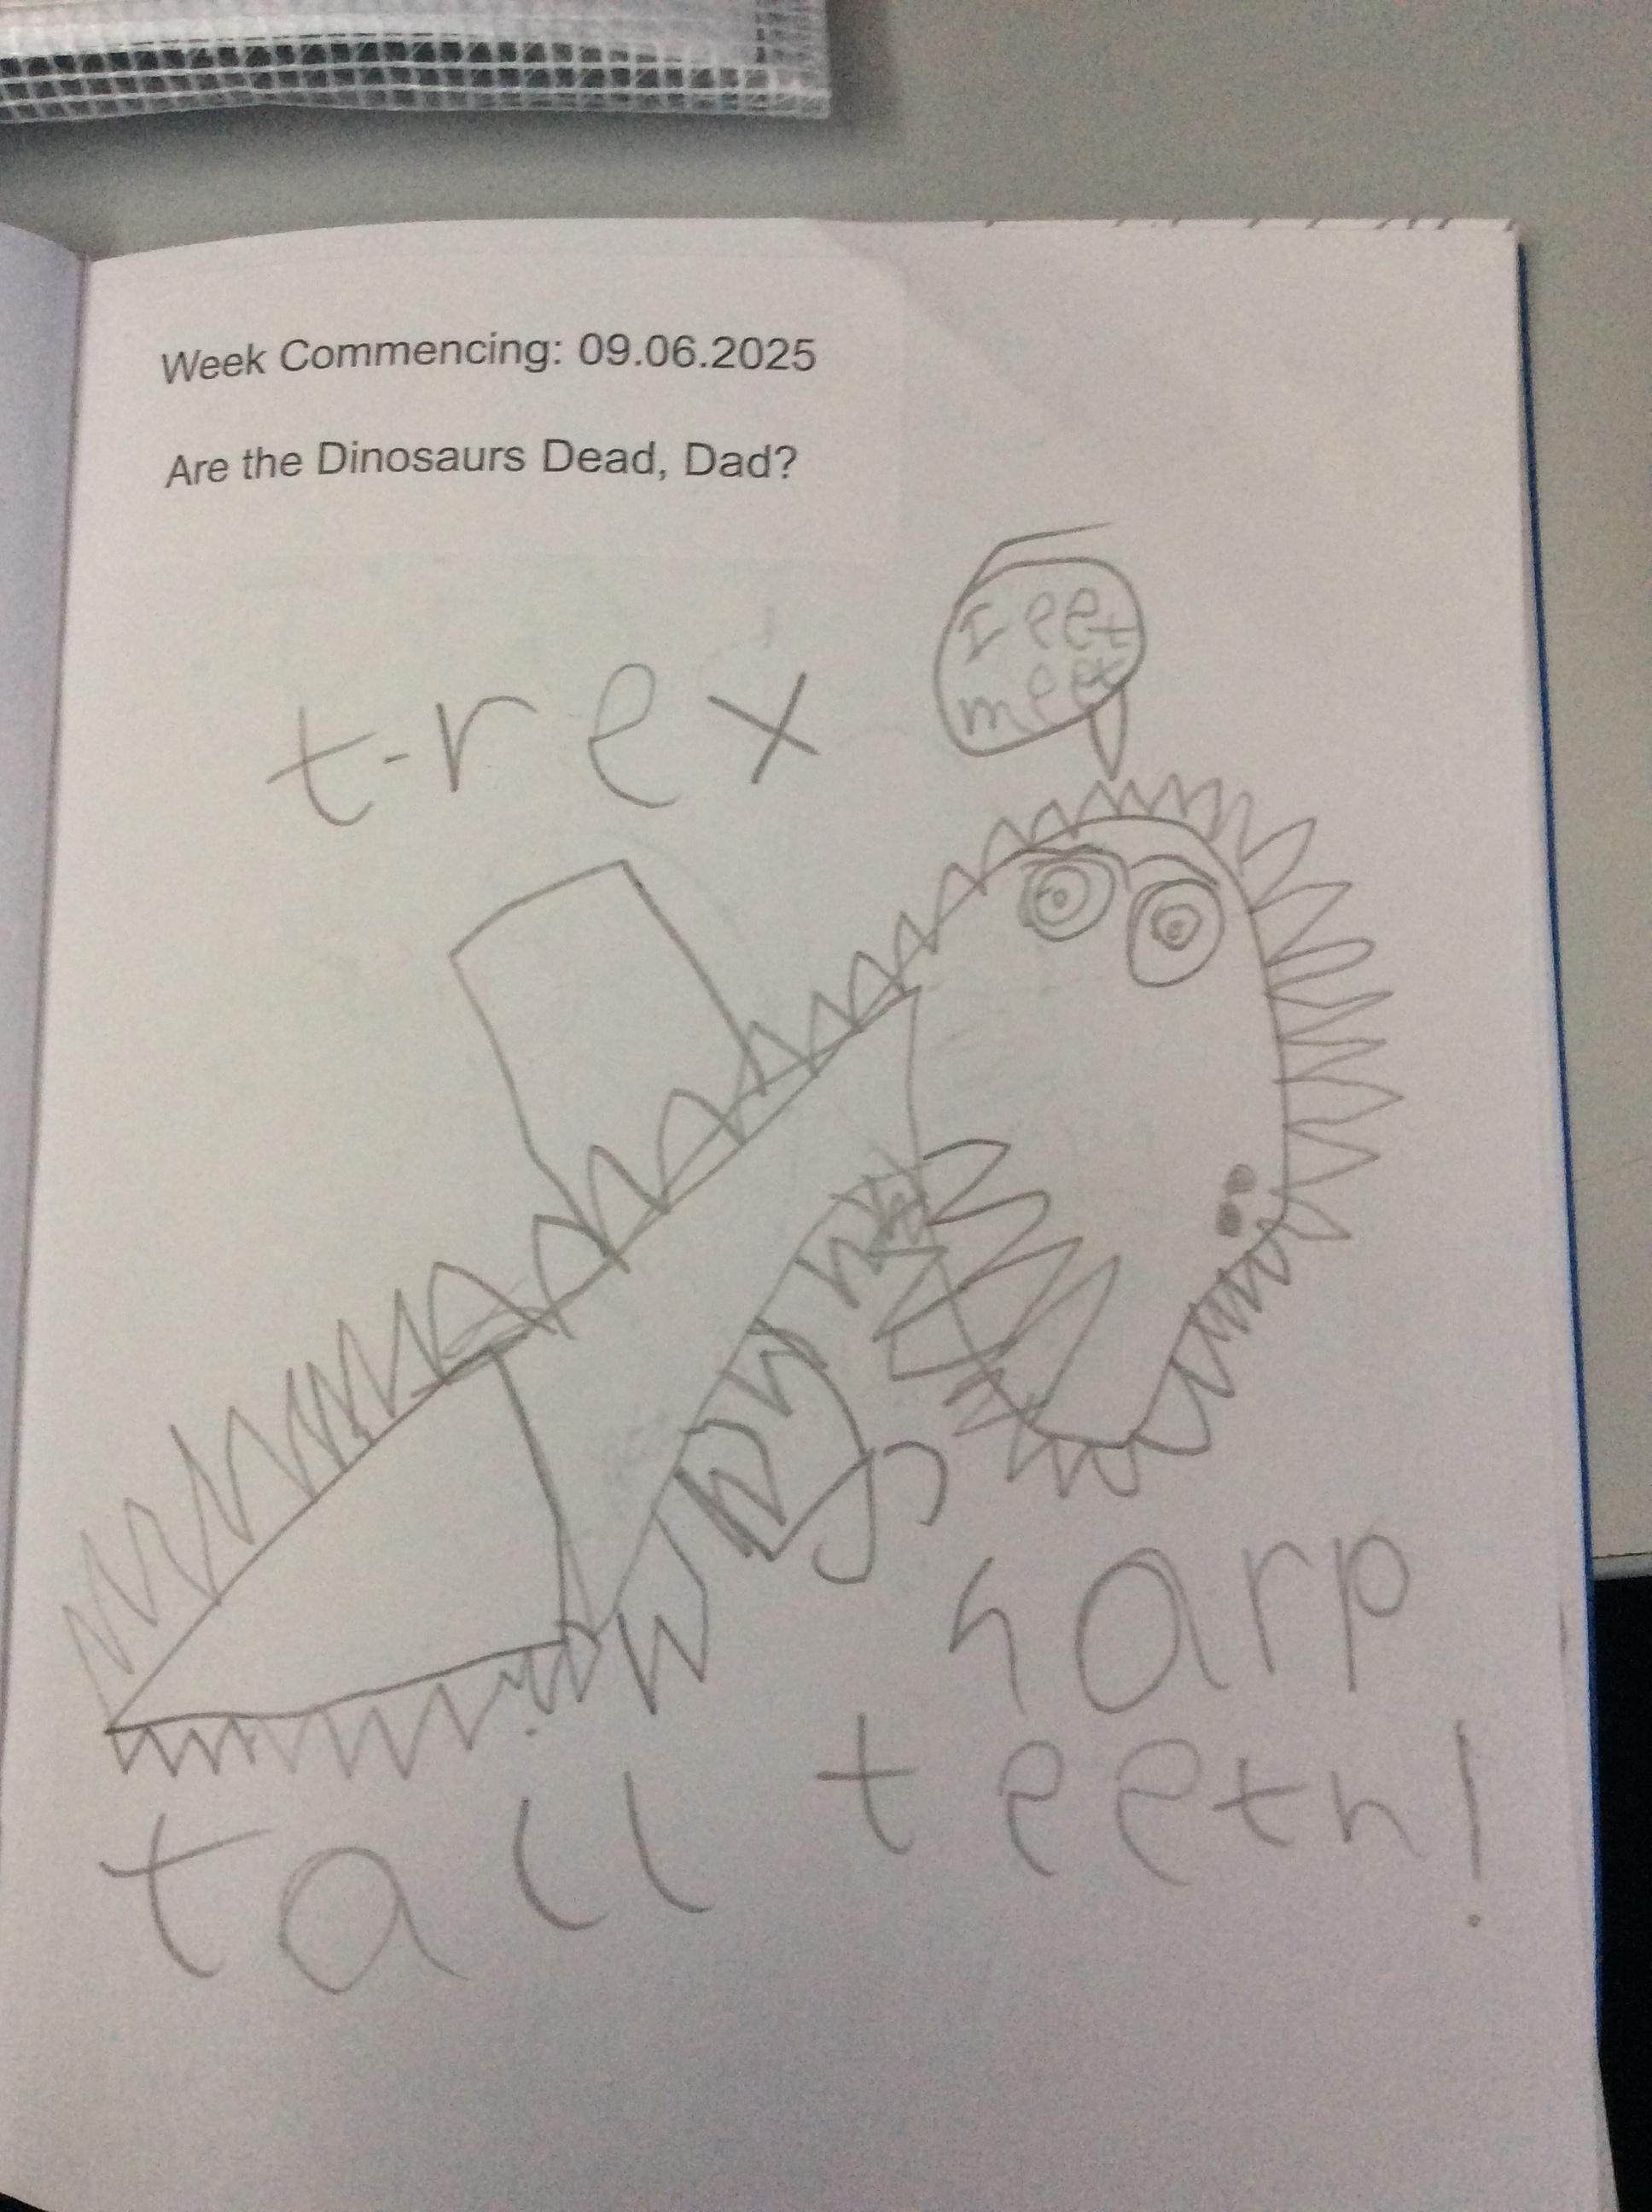 Week Commencing: 09.06.2025
Are the Dinosaurs Dead, Dad?
I eet
meet
t-rex
sharp
tall teeth!